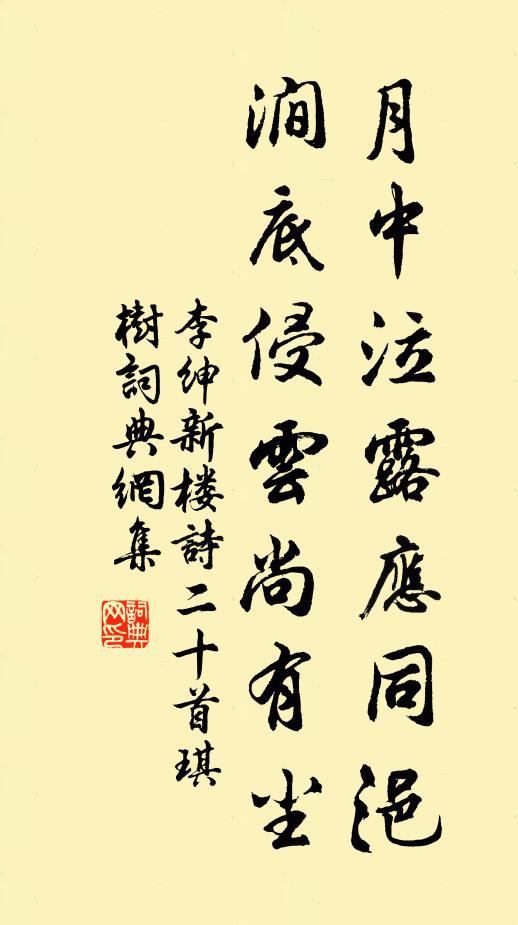 月中泣露應同浥
澗底侵雲尚有塵
李紳新楼詩二十首琪
樹詞典網集
詞典网印